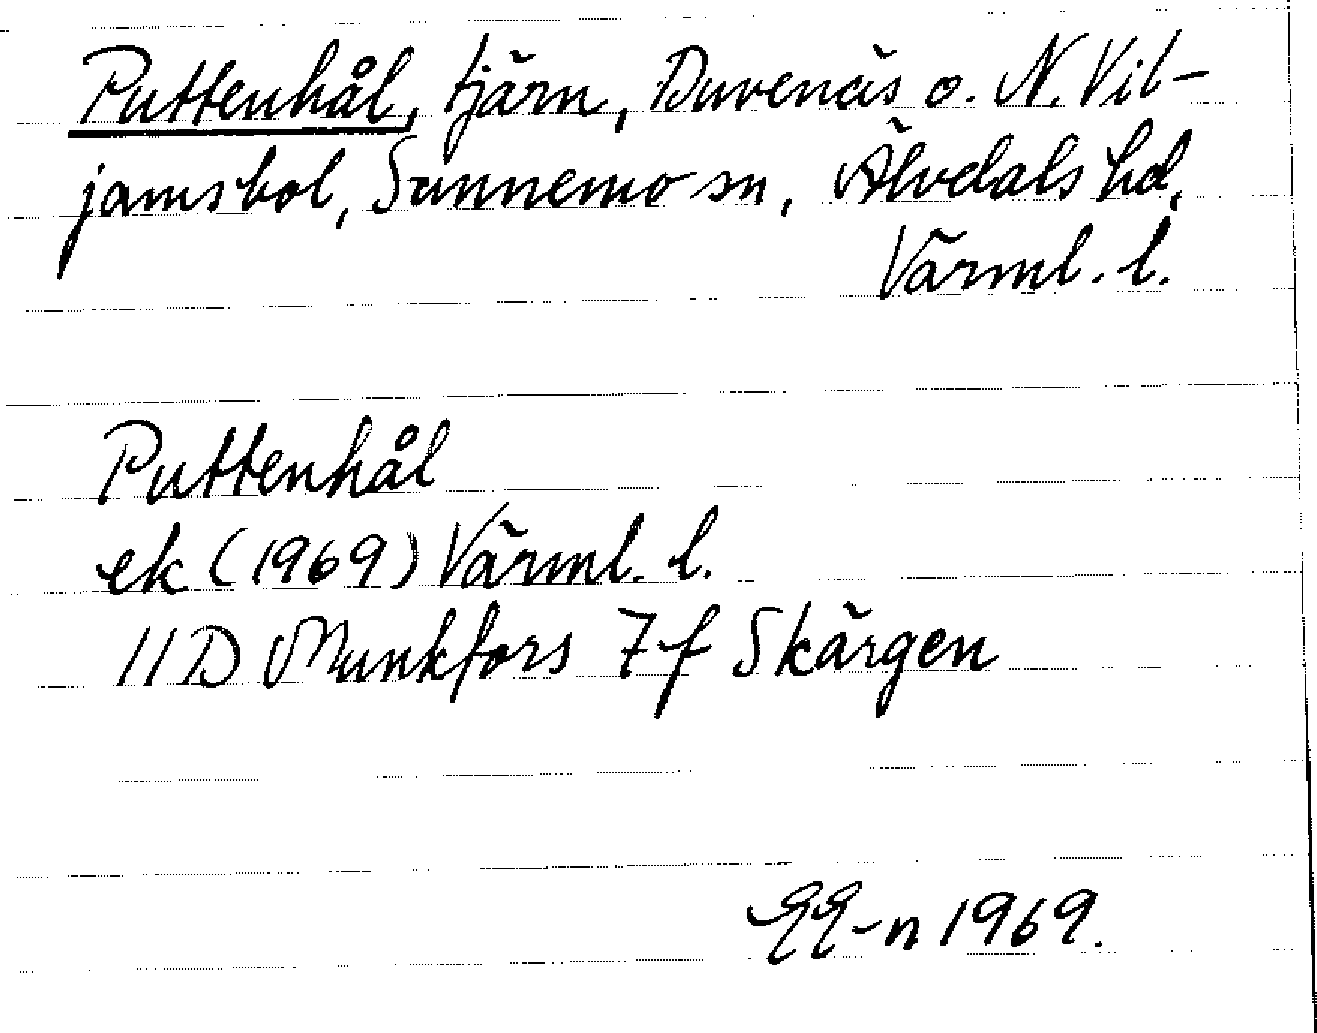 Puttenhål, tjärn, Duvenäs o. N. Vil-
jamsbol, Sunnemo sn, Älvdals hd,
Värml. l.
Puttenhål
ek (1969) Värml. l.
11D Munkfors 7f Skärgen
-n 1969.